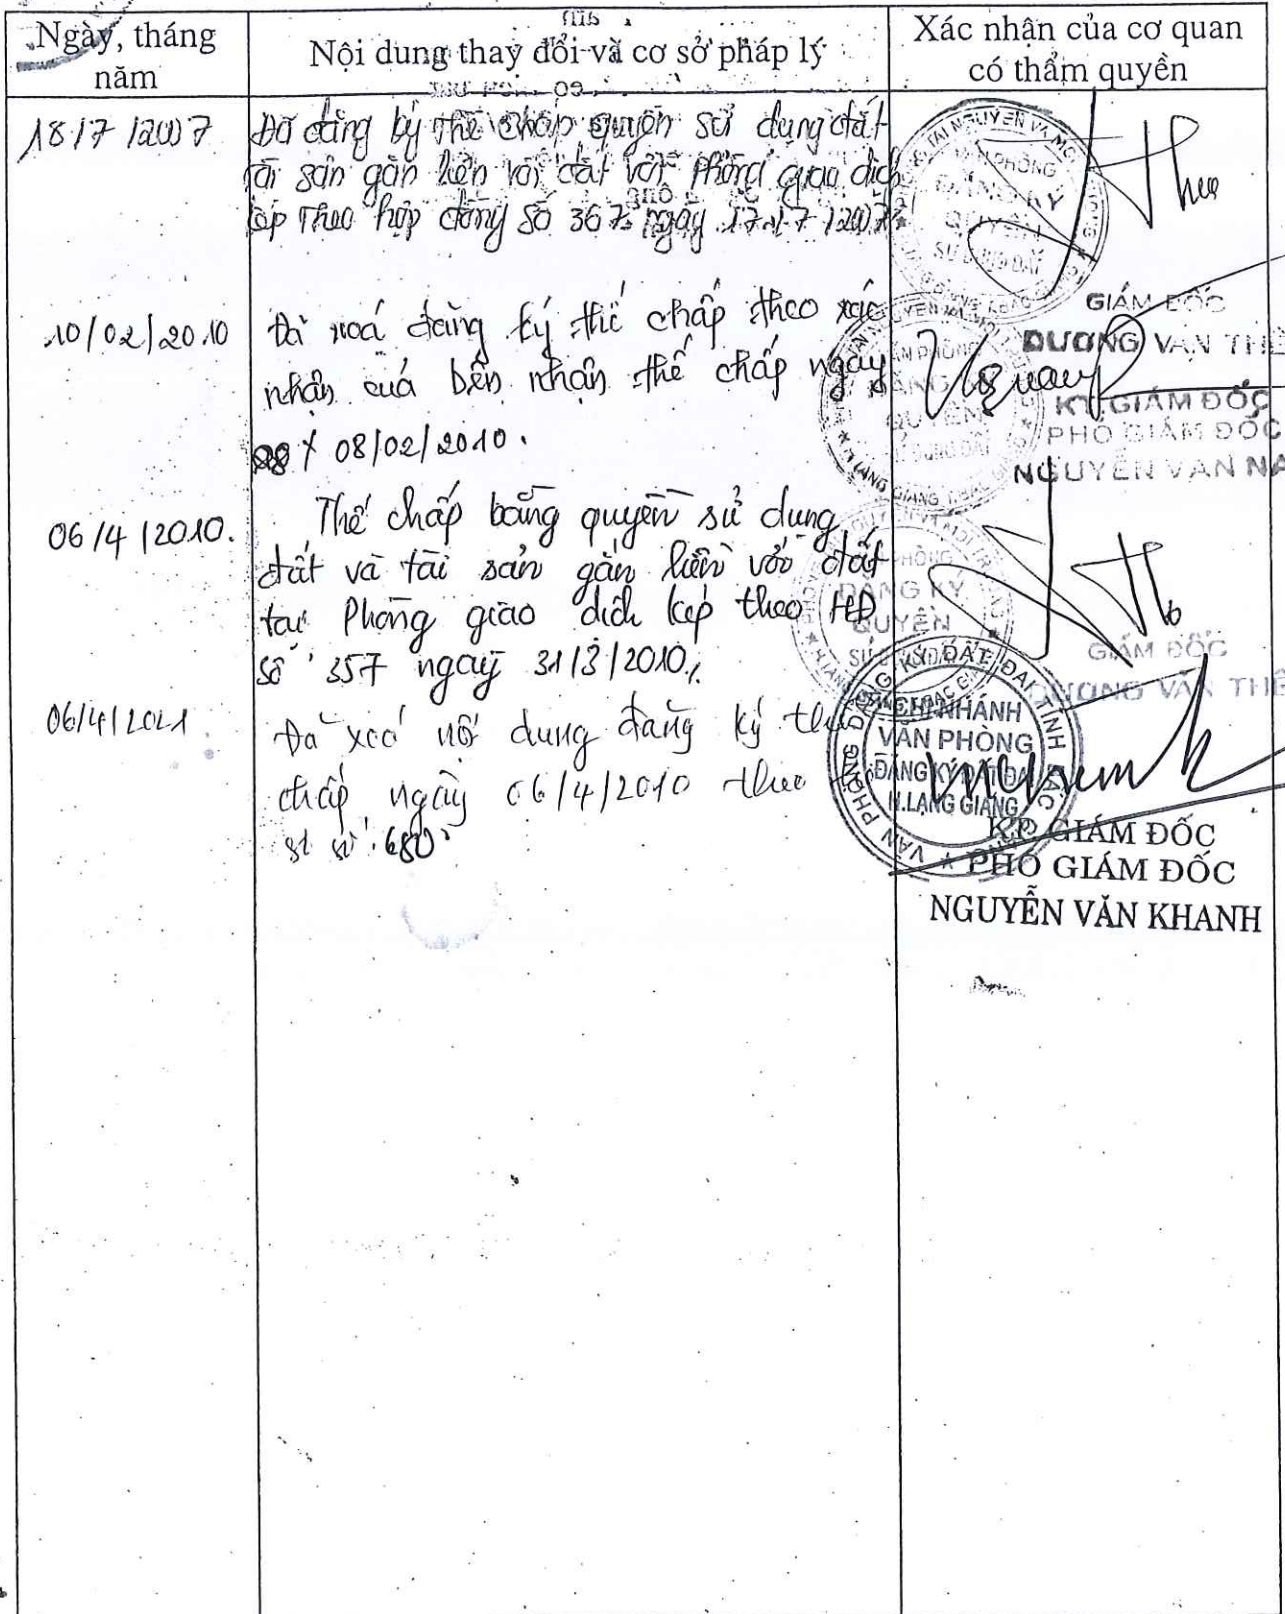 Ngày, tháng năm
Nội dung thay đổi và cơ sở pháp lý
Xác nhận của cơ quan có thẩm quyền
18/7/2007
Đã đăng ký thế chấp quyền sử dụng đất
tài sản gắn liền với đất với phòng giao dịch
kép theo hợp đồng số 367 ngày 17/7/2007
GIÁM ĐỐC
DƯƠNG VĂN THẾ
10/02/2010
Đã xoá đăng ký thế chấp theo xác
nhận của bên nhận thế chấp ngày
08/02/2010.
KT GIÁM ĐỐC
PHÓ GIÁM ĐỐC
NGUYỄN VĂN NA
06/4/2010.
Thế chấp bằng quyền sử dụng
đất và tài sản gắn liền với đất
tại Phòng giao dịch kép theo HĐ
số 357 ngày 31/3/2010.
ĐĂNG KÝ
QUYỀN
SỬ DỤNG ĐẤT
GIÁM ĐỐC
DƯƠNG VĂN THẾ
06/4/2021
Đã xoá nội dung đăng ký thế
chấp ngày 06/4/2010 theo
số 680
VĂN PHÒNG ĐĂNG KÝ ĐẤT ĐAI TỈNH
CHI NHÁNH
VĂN PHÒNG
ĐĂNG KÝ ĐẤT ĐAI
H.LẠNG GIANG
KT. GIÁM ĐỐC
PHÓ GIÁM ĐỐC
NGUYỄN VĂN KHANH